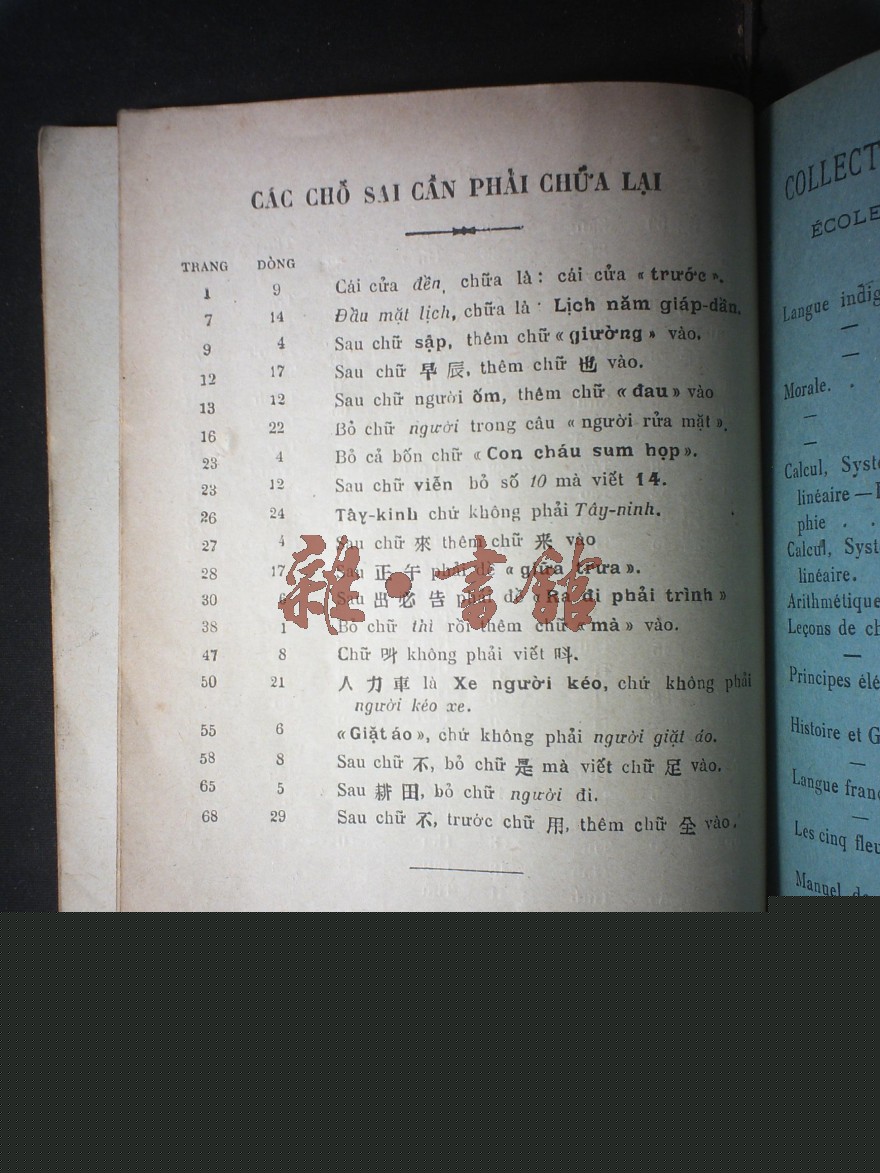 CÁC CHỖ SAI CẦN PHẢI CHỮA LẠI
TRANG DÒNG
1 9 Cái cửa đền, chữa là: cái cửa « trước ».
7 14 Đầu mặt lịch, chữa là: Lịch năm giáp-dần.
9 4 Sau chữ sập, thêm chữ « giường » vào.
12 17 Sau chữ 早 辰, thêm chữ 也 vào.
13 12 Sau chữ người ốm, thêm chữ « đau » vào
16 22 Bỏ chữ người trong câu « người rửa mặt ».
23 4 Bỏ cả bốn chữ « Con cháu sum họp ».
23 12 Sau chữ viễn bỏ số 10 mà viết 14.
26 24 Tây-kinh chứ không phải Tây-ninh.
27 4 Sau chữ 來 thêm chữ 来 vào
28 17 Sau 正 午 phải đề « giữa trưa ».
30 6 Sau 出 必 告 phải đề « Ra đi phải trình »
38 1 Bỏ chữ thì rồi thêm chữ « mà » vào.
47 8 Chữ 呌 không phải viết 㕰.
50 21 人 力 車 là Xe người kéo, chứ không phải
người kéo xe.
55 6 « Giặt áo », chứ không phải người giặt áo.
58 8 Sau chữ 不, bỏ chữ 是 mà viết chữ 足 vào.
65 5 Sau 耕 田, bỏ chữ người đi.
68 29 Sau chữ 不, trước chữ 用, thêm chữ 全 vào.
雜·書館
COLLECT
ÉCOLE
Langue indig
—
—
Morale. .
—
—
Calcul, Syst
linéaire —
phie . .
Calcul, Syst
linéaire.
Arithmétique
Leçons de ch
—
Principes élé
Histoire et G
—
Langue fran
—
Les cinq fleu
Manuel de